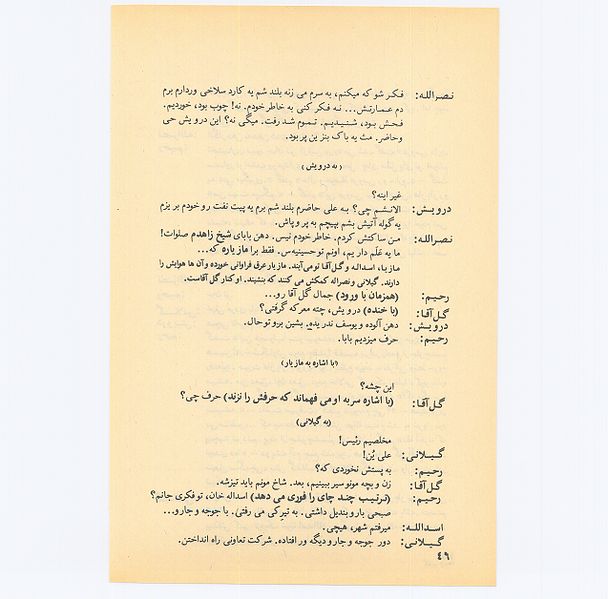 نصرالله: فکر شو که میکنم، به سرم می زنه بلند شم یه کارد سلاخی وردارم برم
دم عمارتش... نه فکر کنی به خاطر خودم. نه! چوب بود، خوردیم.
فحش بود، شنیدیم. تموم شد رفت. میگی نه؟ این درویش حی
وحاضر. مث یه باک بنزین پر بود.
(به درویش)
غیر اینه؟
درویش: الانشم چی؟ به علی حاضرم بلند شم برم یه پیت نفت رو خودم بریزم
یه گوله آتیش بشم بپیچم به پر و پاش.
نصرالله: من ساکتش کردم. خاطر خودم نیس. دهن بابای شیخ زاهدم صلوات!
ما یه علم داریم، اونم تو حسینیه‌س. فقط برا مازیاره که...
مازیار، اسدالله و گل‌آقا تو می‌آیند. مازیار عرق فراوانی خورده و آن ها هوایش را
دارند. گیلانی و نصراله کمکش می کنند که بنشیند. او کنار گل آقاست.
رحیم: (همزمان با ورود) جمال گل آقا رو...
گل‌آقا: (با خنده) درویش، چته معرکه گرفتی؟
درویش: دهن آلوده و یوسف ندریده. بشین برو تو حال.
رحیم: حرف میزدیم بابا.
(با اشاره به مازیار)
این چشه؟
گل‌آقا: (با اشاره سر به او می فهماند که حرفش را نزند) حرف چی؟
(به گیلانی)
مخلصیم رئیس!
گیلانی: علی یُن!
رحیم: به پستش نخوردی که؟
گل‌آقا: زن و بچه مونو سیر ببینیم، بعد. شاخ مونم باید تیزشه.
رحیم: (ترتیب چند چای را فوری می دهد) اسداله خان، تو فکری جانم؟
صبحی بار و بندیل داشتی. به تیرکی می رفتی. با جوجه و جارو...
اسدالله: میرفتم شهر، هیچی.
گیلانی: دور جوجه و جارو دیگه ور افتاده. شرکت تعاونی راه انداختن.
٤٩